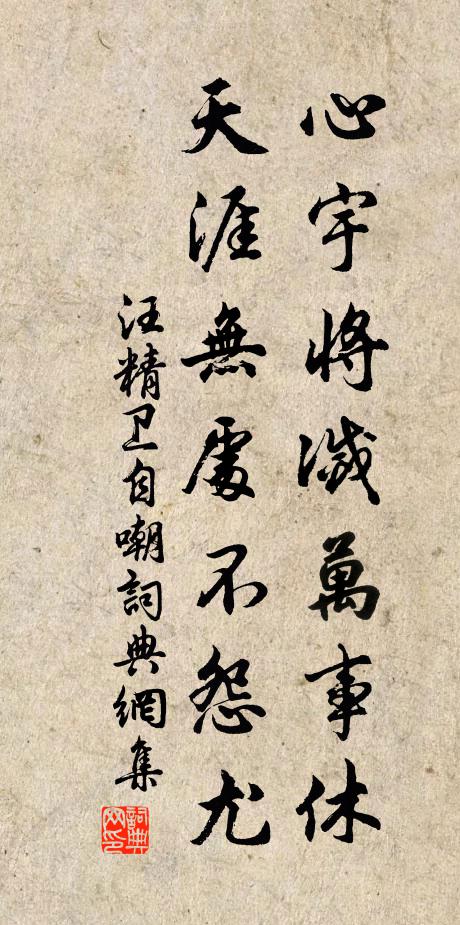 心宇將滅萬事休
天涯無處不怨尤
汪精卫自嘲詞典網集
詞典
网印